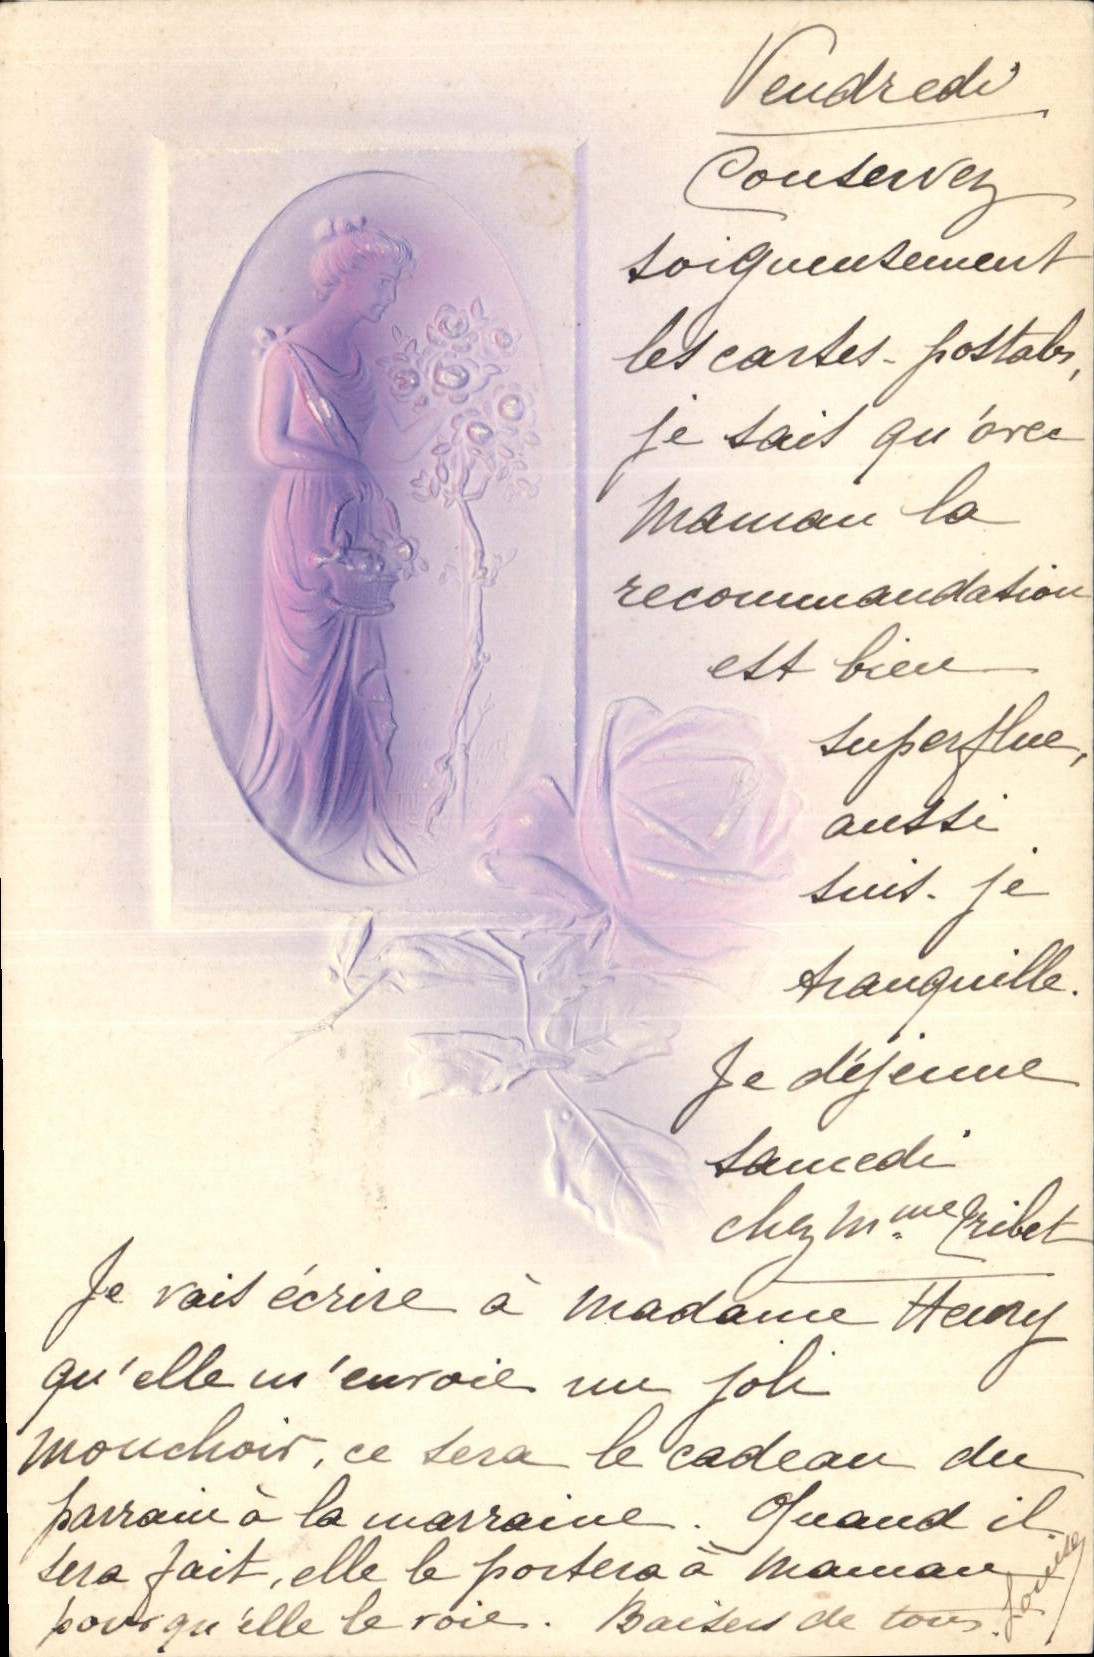 Vendredi
Conservez
soigneusement
les cartes-postales,
je sais qu'avec
Maman la
recommandation
est bien
superflue,
aussi
suis-je
tranquille.
Je déjeune
samedi
chez Mme Tribet
Je vais écrire à madame Henry
qu'elle m'envoie un joli
mouchoir, ce sera le cadeau du
parrain à la marraine. Quand il
sera fait, elle le portera à Maman
pour qu'elle le voie. Baisers de tous.
Louise